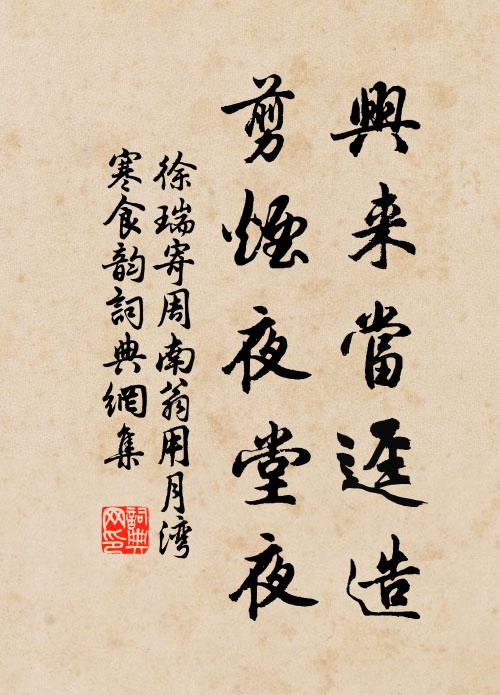 興来當遅造
剪煙夜堂夜
徐瑞寄周南翁用月湾
寒食韵詞典網集